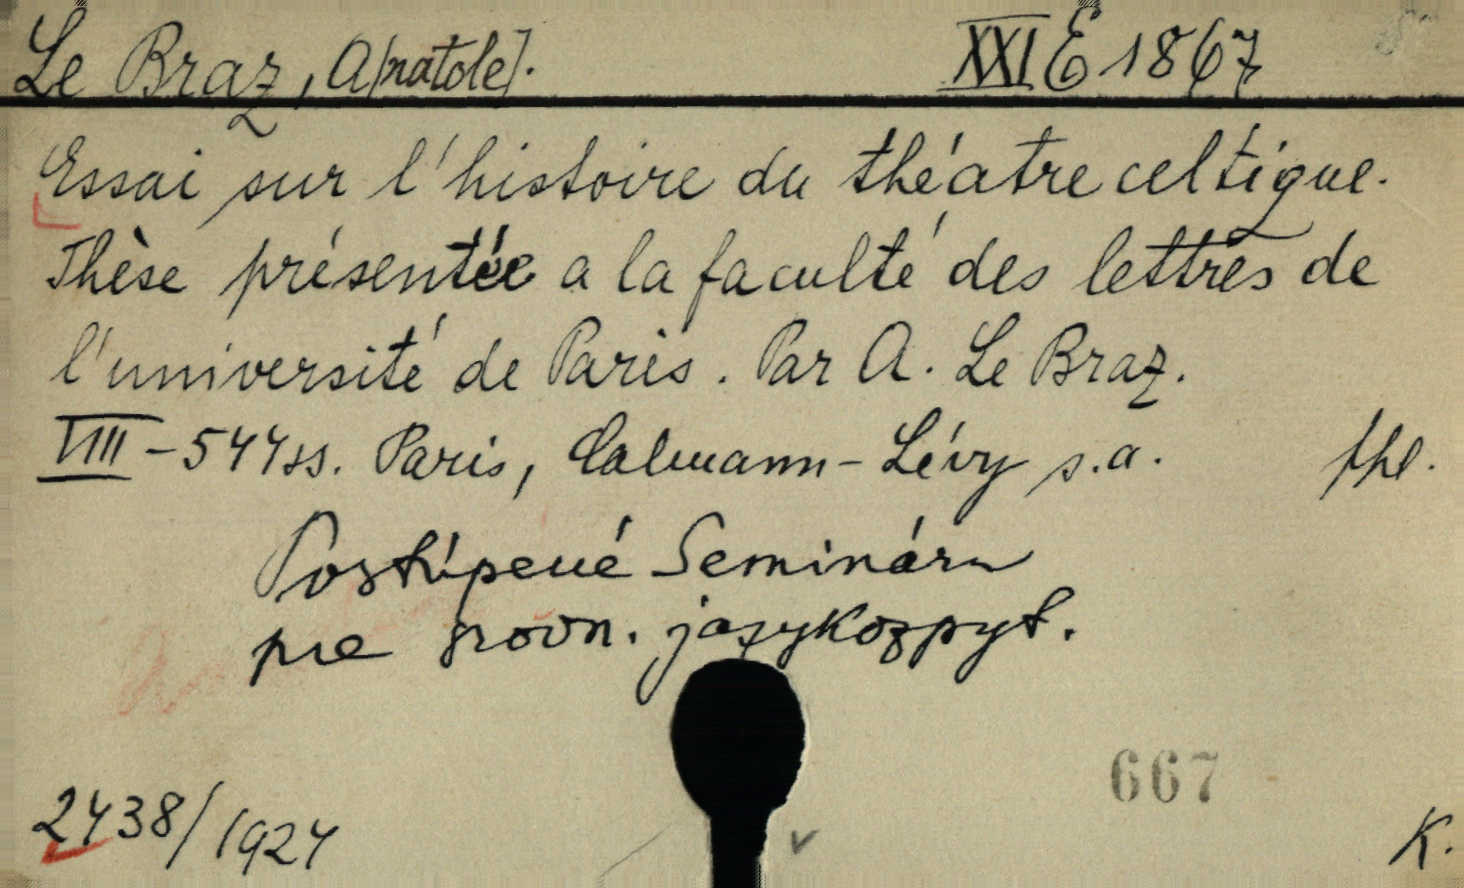 Le Braz, A[natole]. XXI E 1867
Essai sur l'histoire du théatre celtique.
Thèse présentée a la faculté des lettres de
l'université de Paris. Par A. Le Braz.
VIII-544ss. Paris, Calmann-Lévy s.a.
Postúpené Semináru
pre srovn. jazykozpyt.
667
2438/1924
K.